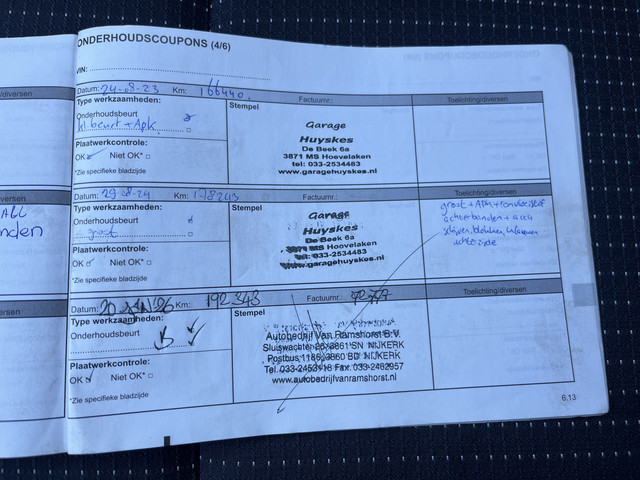 /diversen
ALL
anden
/diversen
ONDERHOUDSCOUPONS (4/6)
VIN:
Datum: 24-08-23 Km: 166440
Factuurnr.:
Toelichting/diversen
Type werkzaamheden:
Onderhoudsbeurt
kl beurt + Apk
Plaatwerkcontrole:
OK Niet OK*
*Zie specifieke bladzijde
Stempel
Garage
Huyskes
De Beek 6a
3871 MS Hoevelaken
tel: 033-2534483
www.garagehuyskes.nl
Datum: 29-08-24 Km: 178243
Factuurnr.:
Toelichting/diversen
Type werkzaamheden:
Onderhoudsbeurt
groot
Plaatwerkcontrole:
OK Niet OK*
*Zie specifieke bladzijde
Stempel
Garage
Huyskes
De Beek 6a
3871 MS Hoevelaken
tel: 033-2534483
www.garagehuyskes.nl
groot + APK +
achterbanden + accu
schijven, blokken,
achterzijde
Datum: 20 JAN '26 Km: 192343
Factuurnr.:
Toelichting/diversen
Type werkzaamheden:
Onderhoudsbeurt
Plaatwerkcontrole:
OK Niet OK*
*Zie specifieke bladzijde
Stempel
Autobedrijf Van Ramshorst B.V.
Sluiswachter 26 3861 SN NIJKERK
Postbus 1186, 3860 BD NIJKERK
Tel. 033-2453918 Fax. 033-2462957
www.autobedrijfvanramshorst.nl
6.13